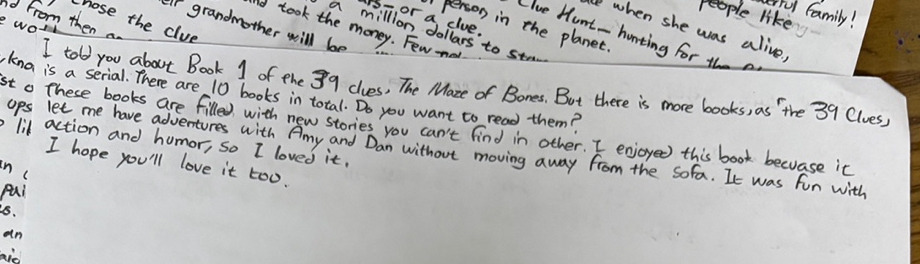 people like
erful family!
person in the planet.
Clue Hunt— hunting for the
when she was alive,
or a clue.
a million dollars to
and took the money. Few
grandmother will be
chose the clue
nd from then
I told you about Book 1 of the 39 clues, The Maze of Bones. But there is more books, as "the 39 Clues,
is a serial. There are 10 books in total. Do you want to read them?
These books are filled with new stories you can't find in other. I enjoyed this book becuase it
let me have adventures with Amy and Dan without moving away from the sofa. It was fun with
action and humor, so I loved it.
I hope you'll love it too.